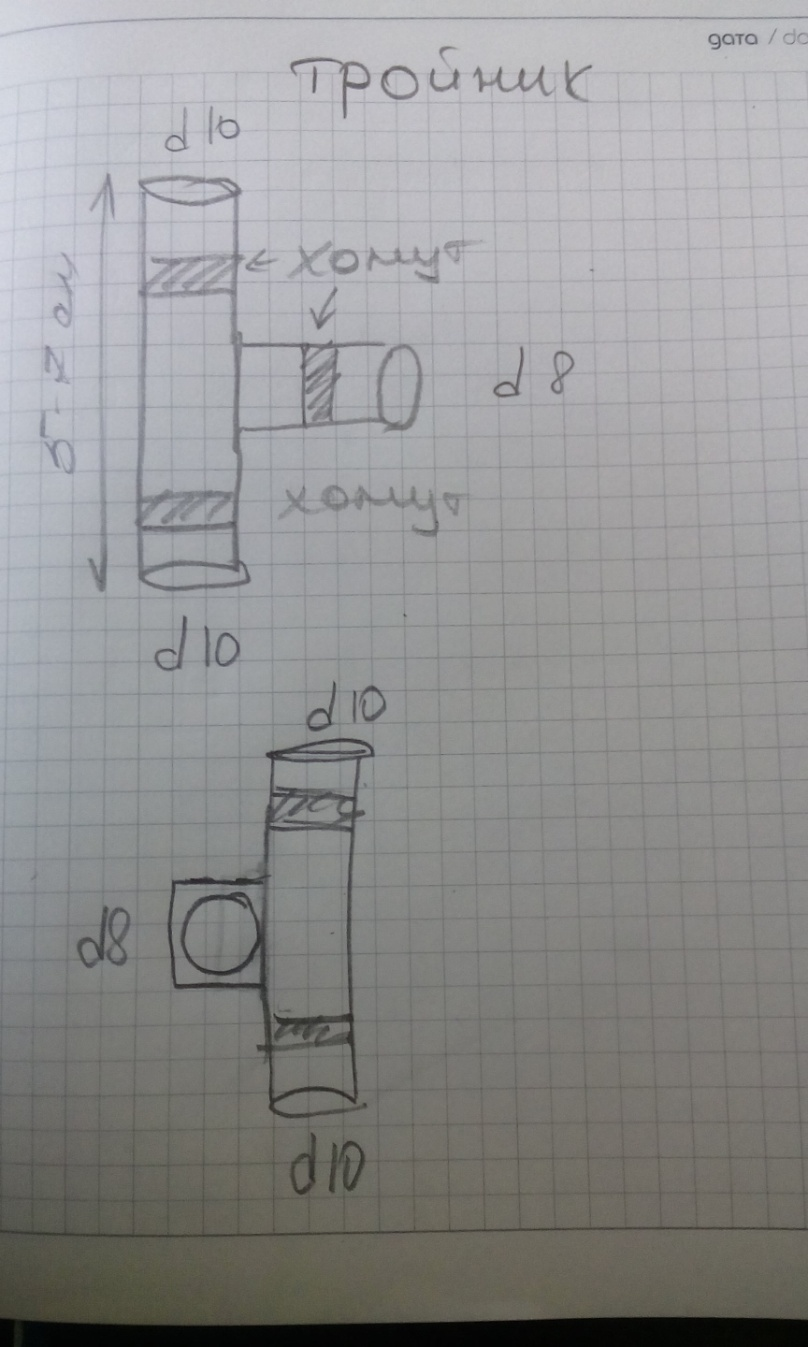 дата / da
тройник
d 10
хомут
5-7 см
d 8
хомут
d 10
d 10
d8
d10